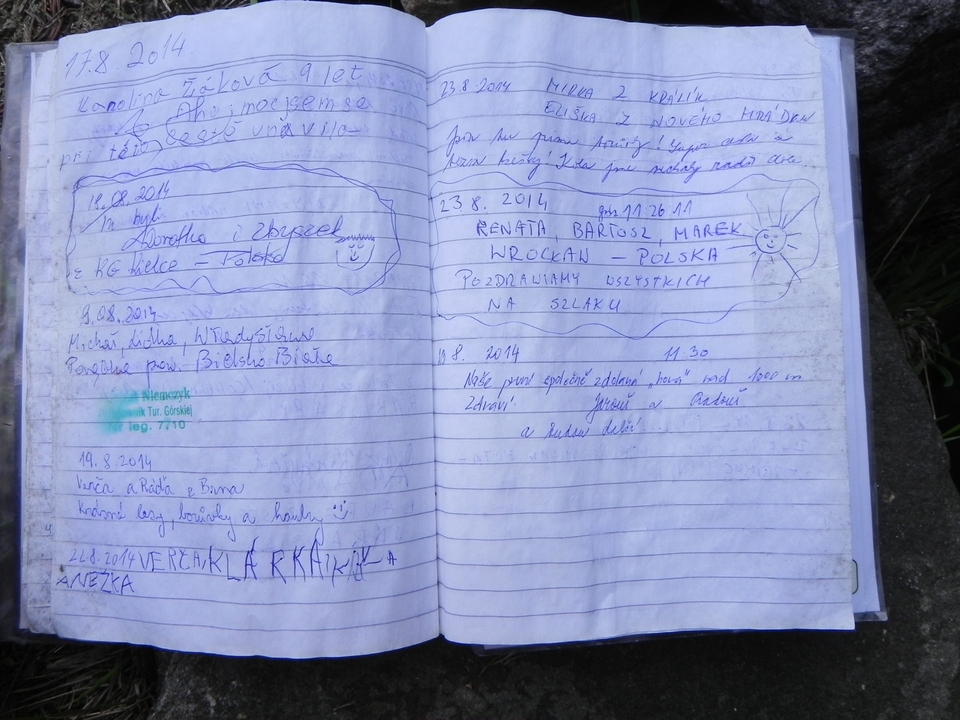 17.8. 2014
Karolína Žáková 9 let
Ahoj moc jsem se
při této cestě unavila
18.08.2014
Tu byli:
Dorotka i Zbyszek
z KG Kielce – Polska
9.08.2014
Michał, Lidka, Władysława
pow. Bielsko-Biała
Niemczyk
Tur. Górskiej
Nr leg. 7710
19.8.2014
Verča a Ráďa z Brna
Krásné lesy, borůvky a houby
22.8.2014 VERČA, KLÁRKA, A
ANEŽKA
23.8.2014 MIRKA Z KRÁLÍK
ELIŠKA Z NOVÉHO HRÁDKU
23.8. 2014 godz. 11 26 11
RENATA, BARTOSZ, MAREK
WROCŁAW – POLSKA
POZDRAWIAMY WSZYSTKICH
NA SZLAKU
8. 2014 11.30
Naše první společně zdolaná „hora" nad 1000 m
Zdraví Jarouš a Radouš
a budou další...